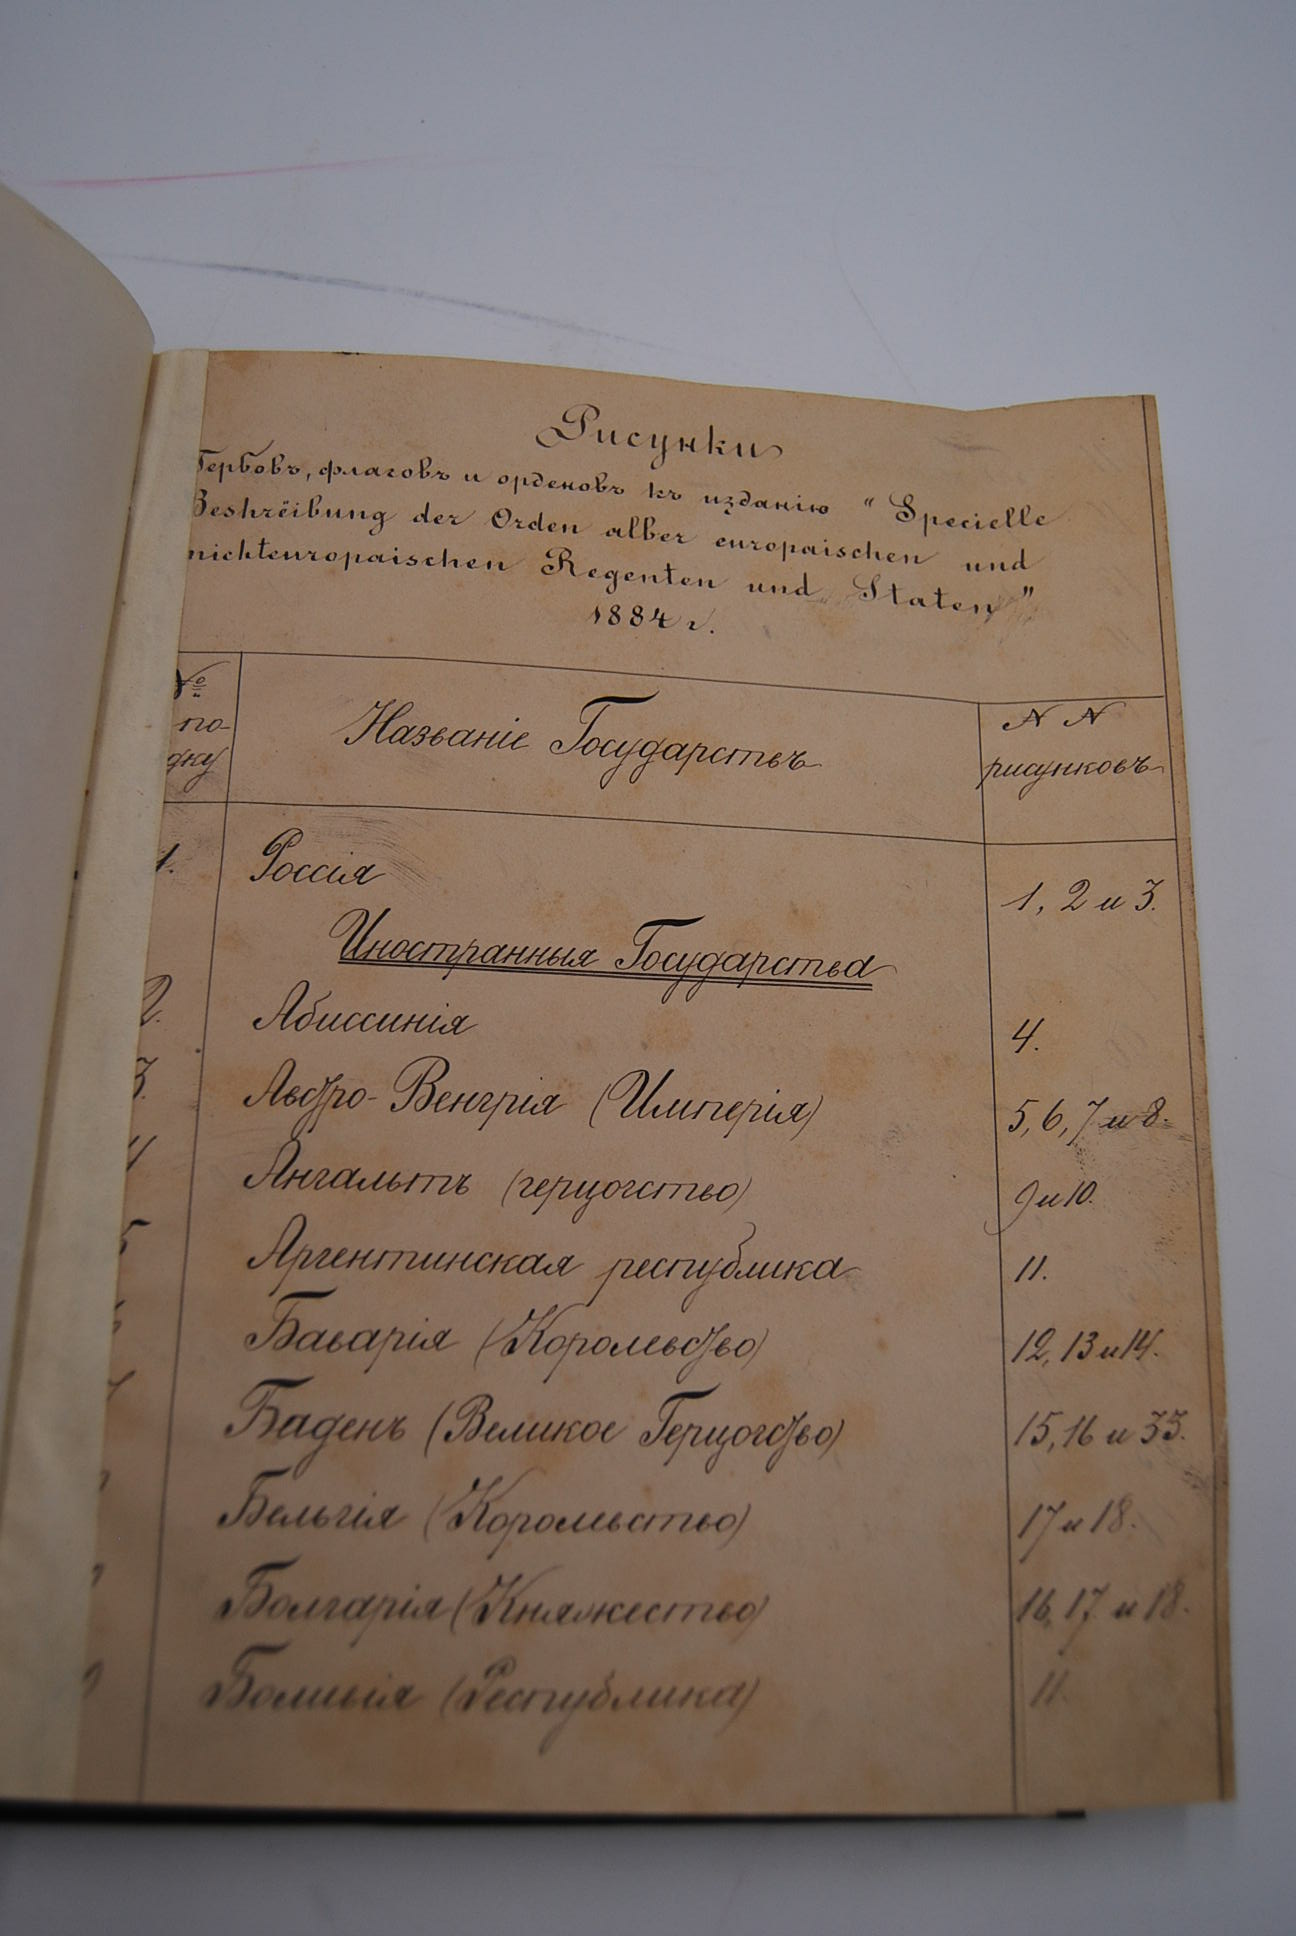 Рисунки
Гербовъ, флаговъ и орденовъ къ изданію "Specielle
Beshrëibung der Orden alber europaischen und
nichteuropaischen Regenten und Staten"
1884 г.
№ по- дку Названіе Государствъ N N рисунковъ
1. Россія 1, 2 и 3.
Иностранныя Государства
2. Абиссинія 4.
3. Австро-Венгрія (Имперія) 5, 6, 7 и 8.
4 Ангальтъ (герцогство) 9 и 10.
5 Аргентинская республика 11.
Баварія (Королевство) 12, 13 и 14.
7 Баденъ (Великое Герцогство) 15, 16 и 33.
Бельгія (Королевство) 17 и 18.
Болгарія (Княжество) 16, 17 и 18.
Боливія (Республика) 11.